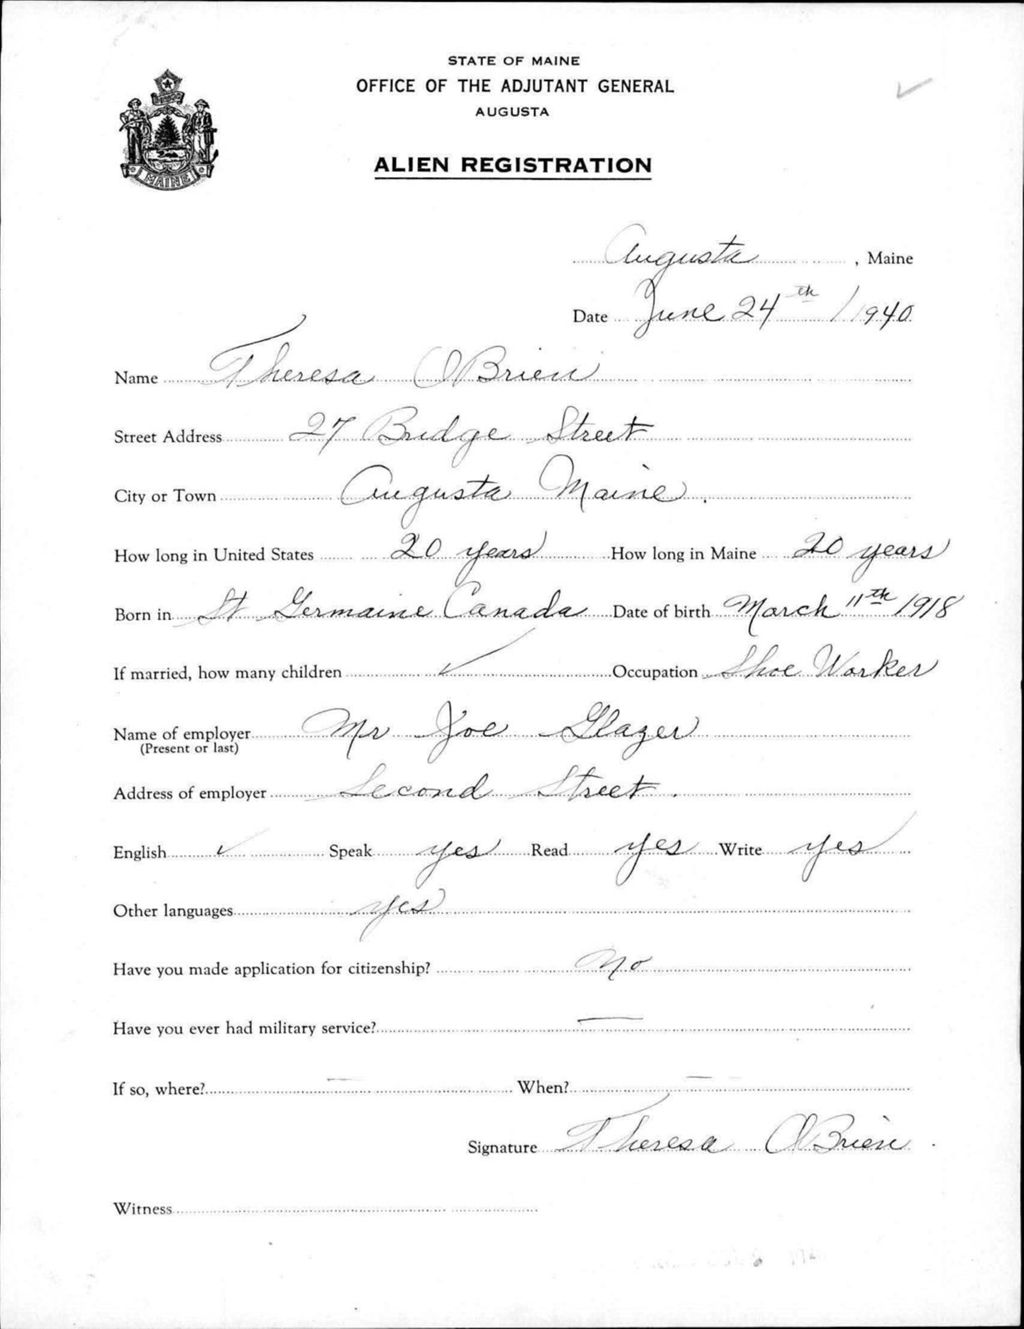 STATE OF MAINE
OFFICE OF THE ADJUTANT GENERAL
AUGUSTA
ALIEN REGISTRATION
MAINE
Augusta, Maine
Date June 24th / 1940
Name Theresa O'Brien
Street Address 27 Bridge Street
City or Town Augusta Maine.
How long in United States 20 years How long in Maine 20 years
Born in St Germaine Canada Date of birth March 11th 1918
If married, how many children ✓ Occupation Shoe Worker
Name of employer Mr Joe Glazer
(Present or last)
Address of employer Second Street.
English ✓ Speak yes Read yes Write yes
Other languages yes
Have you made application for citizenship? No
Have you ever had military service? —
If so, where? — When? —
Signature Theresa O'Brien.
Witness